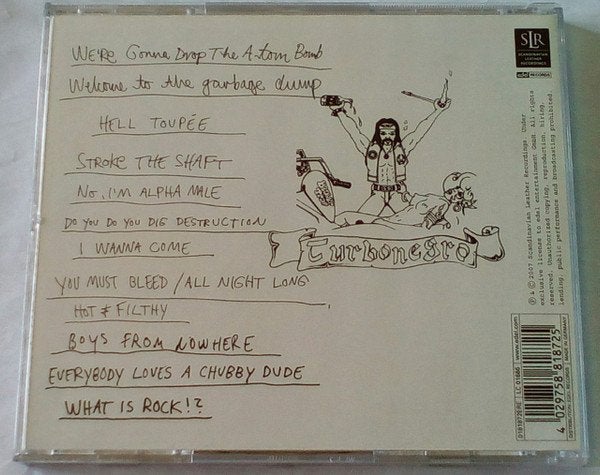 We're Gonna Drop The A-tom Bomb
Welcome to the garbage dump
HELL TOUPÉE
STROKE THE SHAFT
NO, I'M ALPHA MALE
DO YOU DO YOU DIG DESTRUCTION
I WANNA COME
YOU MUST BLEED / ALL NIGHT LONG
HOT & FILTHY
BOYS FROM NOWHERE
EVERYBODY LOVES A CHUBBY DUDE
WHAT IS ROCK!?
Turbonegro
SLR
SCANDINAVIAN
LEATHER
RECORDINGS
edel RECORDS
℗ & © 2007 Scandinavian Leather Recordings. Under
exclusive license to edel entertainment GmbH. All rights
reserved. Unauthorized copying, reproduction, hiring,
lending, public performance and broadcasting prohibited.
LC 01666 | www.edel.com
DISTRIBUTION: EDEL RECORDS | MADE IN GERMANY
4 029758 818725